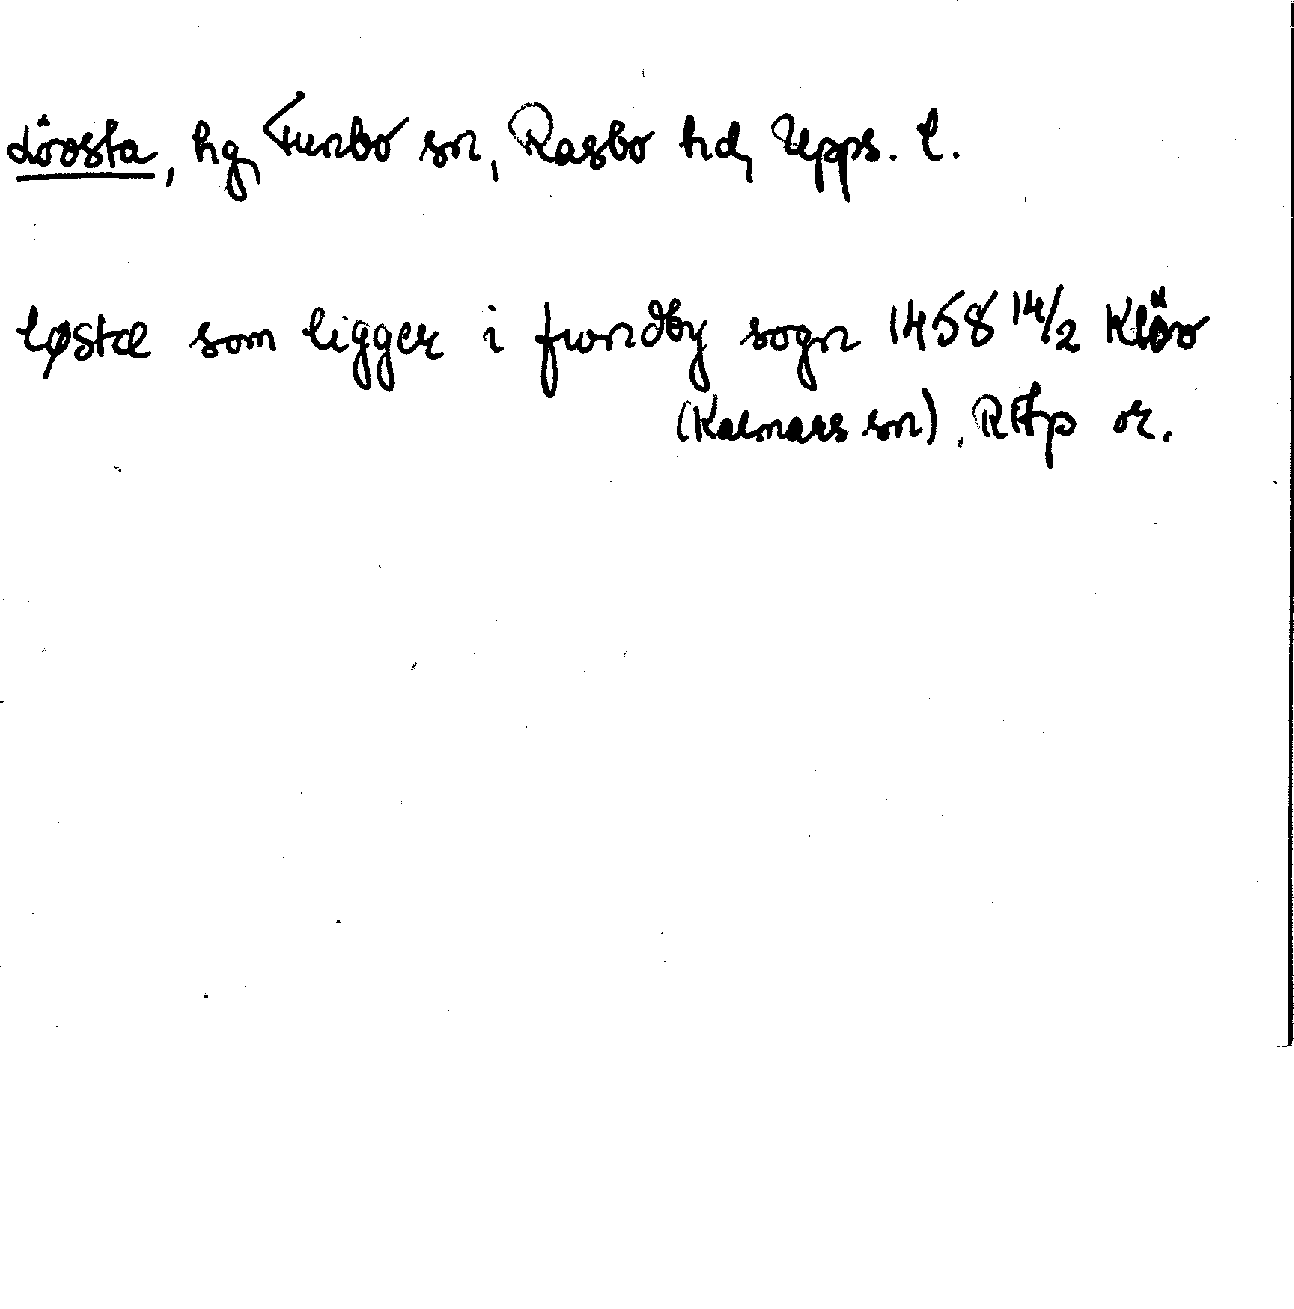 Lövsta, hg, Funbo sn, Rasbo hd, Upps. l.
løstæ som ligger i fwndby sogn 1458 14/2 Klöv
(Kalmars sn), RAp or.